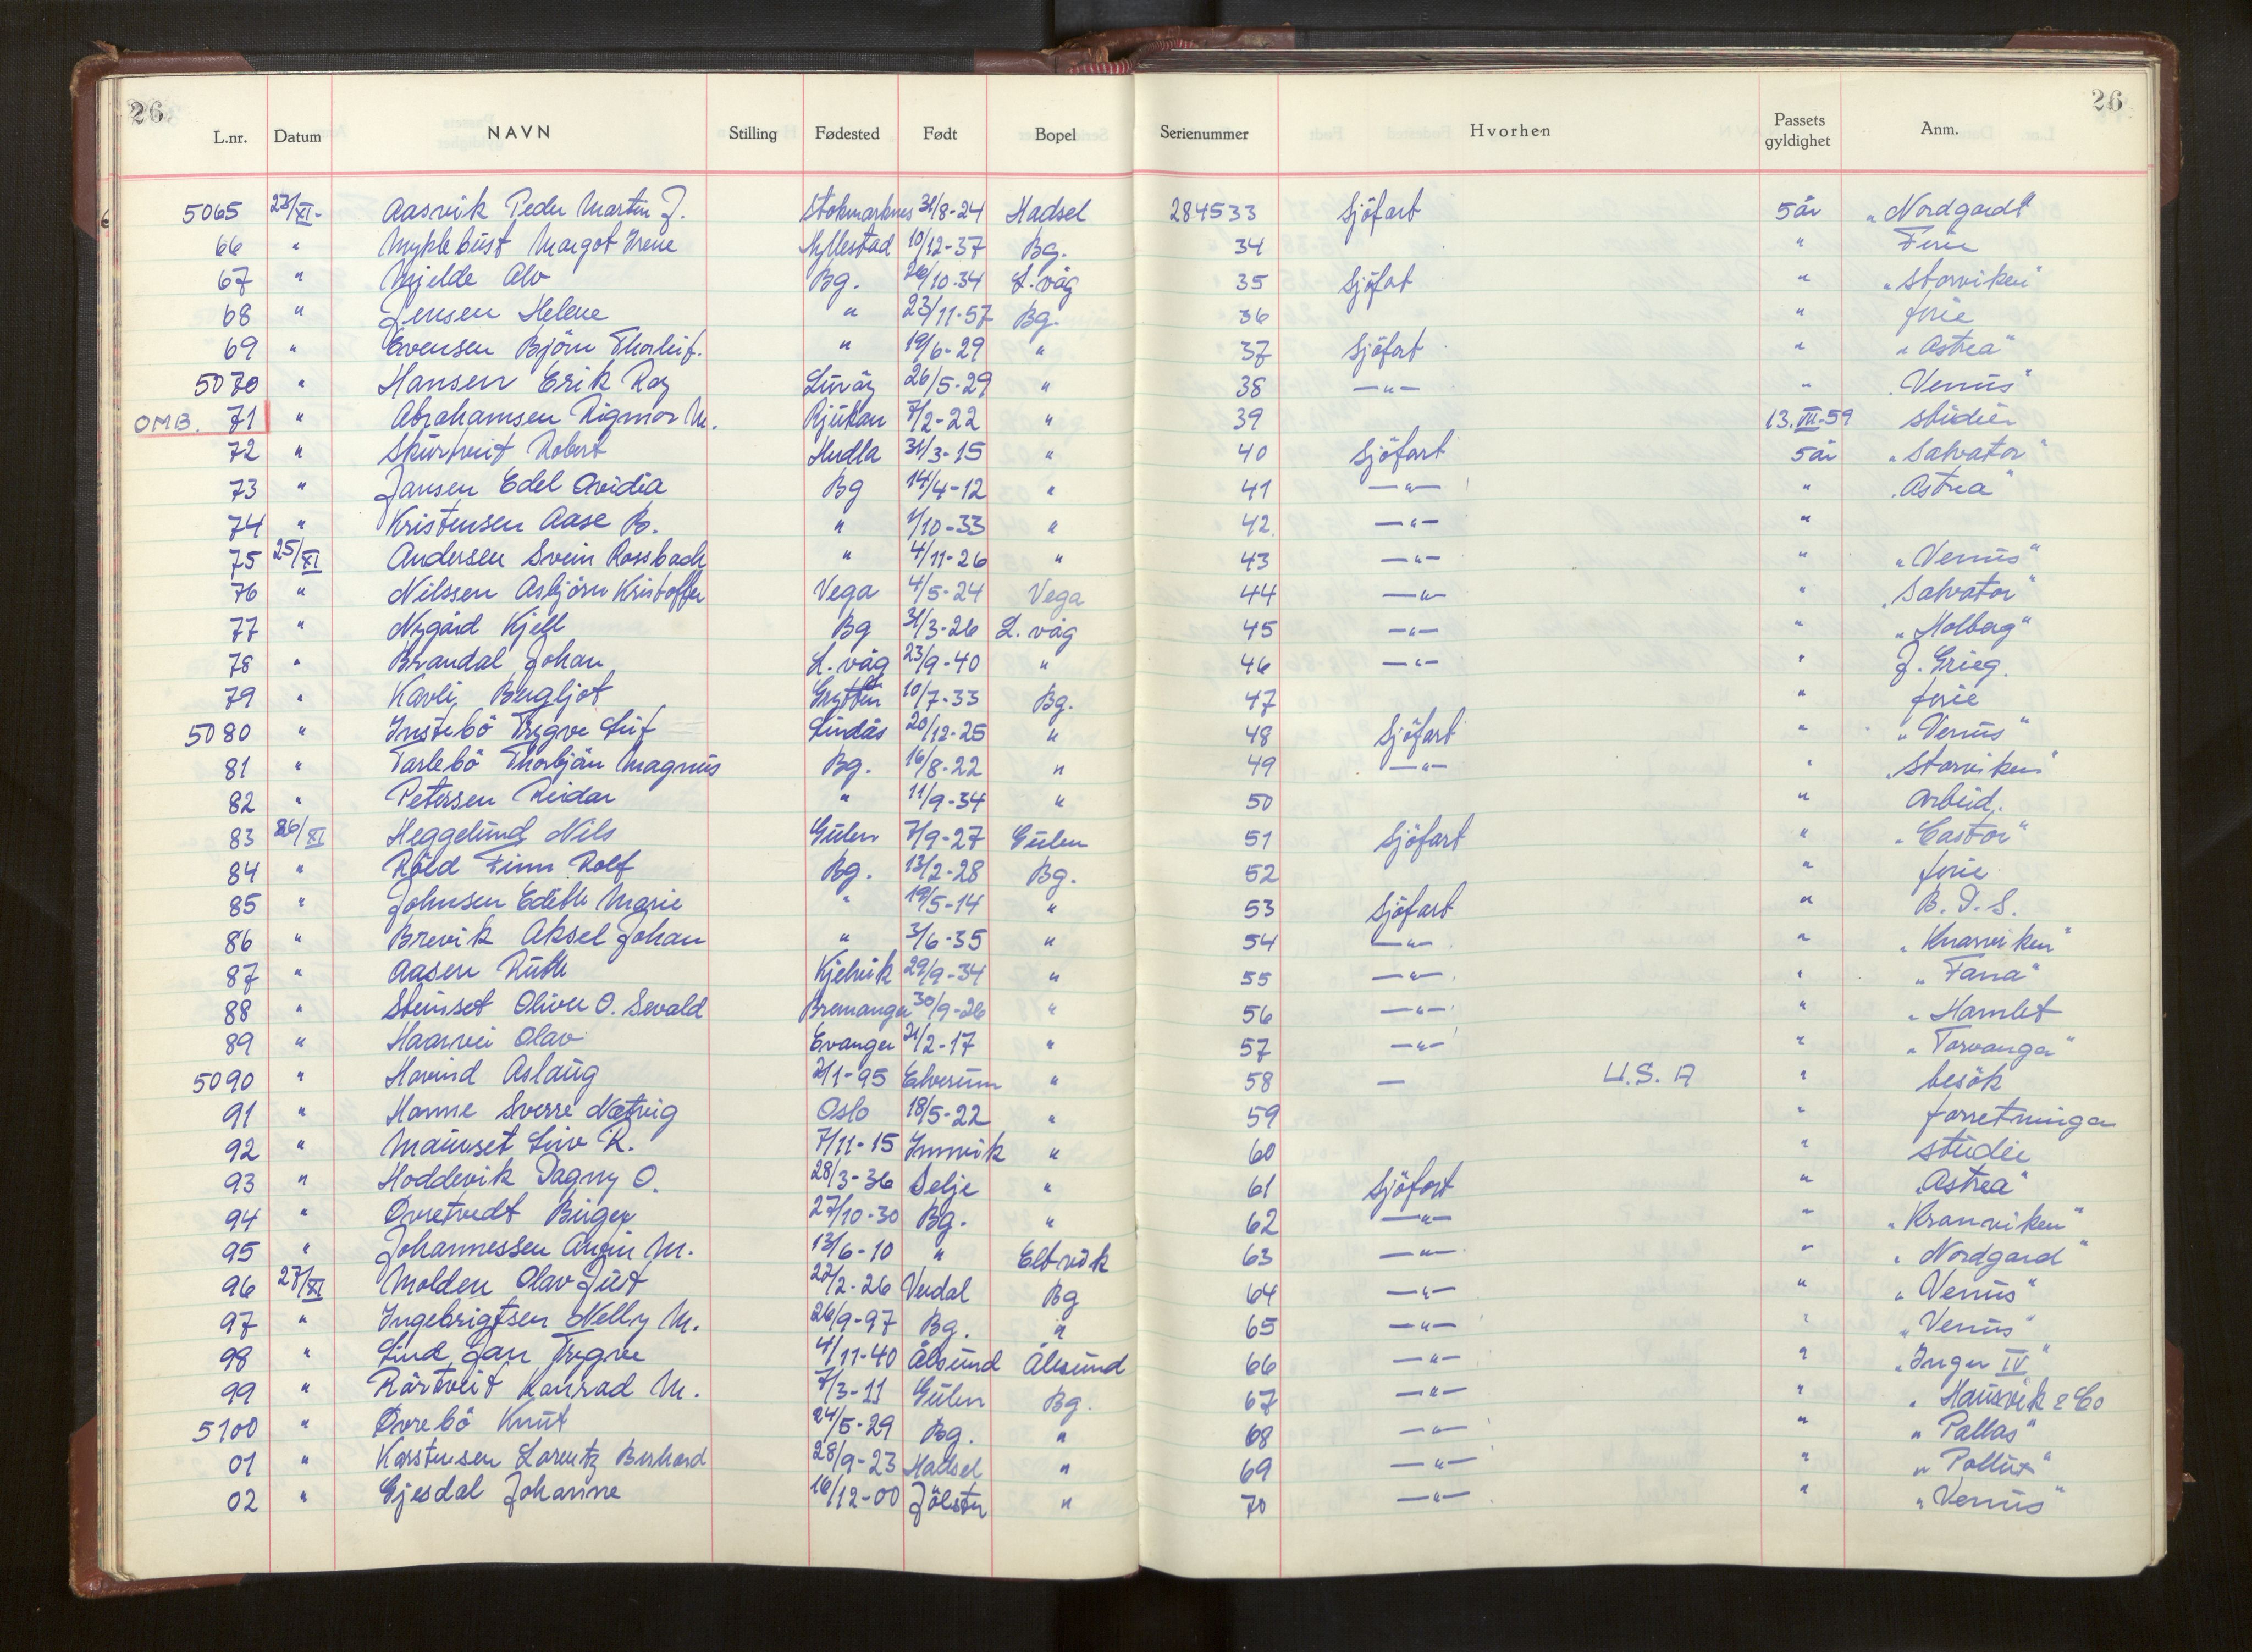 26 26
L.nr. Datum NAVN Stilling Fødested Født Bopel Serienummer Hvorhen Passets gyldighet Anm.
5065 23/XI- Aasvik Peder Martin J. Stokmarknes 31/8-24 Hadsel 284533 Sjöfart 5 år "Nordgardt"
66 " Myklebust Margot Irene Hyllestad 10/12-37 Bg. 34 " Ferie
67 " Mjelde Alv Bg. 26/10-34 L.våg 35 Sjöfat " "Storviken"
68 " Jensen Helene " 23/11-57 Bg. 36 " ferie
69 " Evensen Björn Thorleif. " 19/6-29 " 37 Sjöfart " "Astrea"
5070 " Hansen Erik Roy Luröy 26/5-29 " 38 —"— " "Venus"
OMB. 71 " Abrahamsen Rigmor M. Rjukan 7/2-22 " 39 13.III-59 studier
72 " Skurtveit Robert Hudla 31/3-15 " 40 Sjöfart 5 år "Salvator"
73 " Jansen Edel Ovidia Bg 14/4-12 " 41 —"— " "Astrea"
74 " Kristensen Aase B. " 1/10-33 " 42 —"— "
75 25/XI Andersen Svein Rossbach " 4/11-26 " 43 —"— " "Venus"
76 " Nilssen Asbjörn Kristoffer Vega 4/5-24 Vega 44 —"— " "Salvator"
77 " Nygård Kjell Bg 31/3-26 L.våg 45 —"— " "Holberg"
78 " Brandal Johan L.våg 23/9-40 " 46 —"— " J. Grieg.
79 " Kavli, Bergljot Grytten 10/7-33 Bg. 47 " ferie
5080 " Instebö Trygve Leif Lindås 20/12-25 " 48 Sjöfart " "Venus"
81 " Tarlebö Thorbjörn Magnus Bg. 16/8-22 " 49 —"— " "Storviken"
82 " Petersen Reidar " 11/9-34 " 50 " arbeid.
83 26/XI Heggelund Nils Gulen 7/9-27 Gulen 51 Sjöfart " "Castor"
84 " Röed Finn Rolf Bg. 13/2-28 Bg. 52 " ferie
85 " Johnsen Edith Marie " 19/5-14 " 53 Sjöfart " B.D.S.
86 " Brevik Aksel Johan " 3/6-35 " 54 —"— " "Knarviken"
87 " Aasen Ruth Kjelvik 29/9-34 " 55 —"— " "Fana"
88 " Steinset Oliver O. Sevald Bremanger 30/9-26 " 56 —"— " "Hamlet
89 " Haarvei Olav Evanger 21/2-17 " 57 —"— " "Torvanger"
5090 " Hovind Aslaug 2/1-95 Elverum " 58 — U.S.A " besök
91 " Hanne Sverre Nætvig Oslo 18/5-22 " 59 " forretninger
92 " Maurset Liv R. 7/11-15 Innvik " 60 " studier
93 " Hoddevik Dagny O. 28/3-36 Selje " 61 Sjöfart " "Astrea"
94 " Övretvedt Birger 27/10-30 Bg. " 62 —"— " "Kranviken"
95 " Johannessen M. 13/6-10 " 63 —"— " "Nordgard"
96 27/XI Molden Olav Juit 22/2-26 Verdal Bg 64 —"— " "Venus"
97 " Ingebrigtsen Nelly M. 26/9-97 Bg. " 65 —"— " "Venus"
98 " Lind, Jan Trygve 4/11-40 Ålesund Ålesund 66 —"— " "Inger IV"
99 " Rörtveit Konrad M. 7/3-11 Gulen Bg. 67 —"— " " Hausvik & Co
5100 " Övrebö Knut 24/5-29 Bg. " 68 —"— " "Pallas"
01 " Karstensen Lorentz Bernhard 28/9-23 Hadsel " 69 —"— " "Pollux"
02 " Gjesdal Johanne 16/12-00 Jölster " 70 —"— " "Venus"